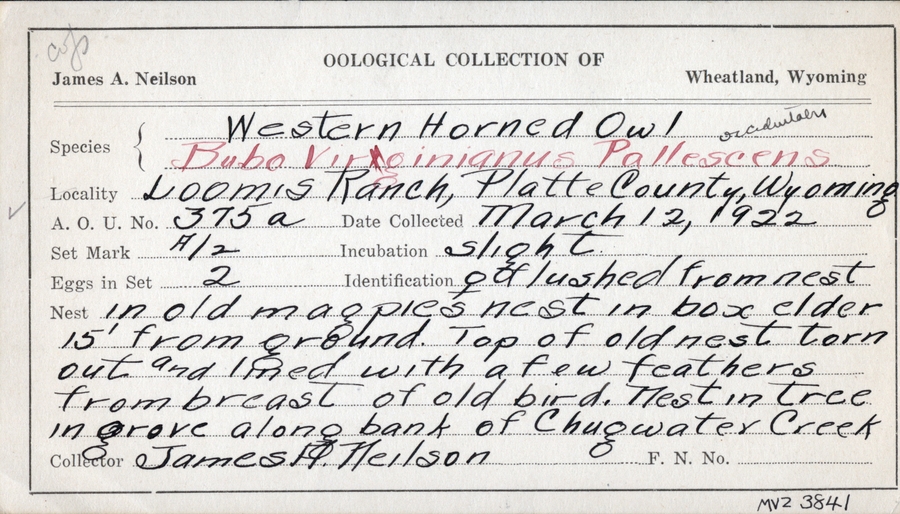 OOLOGICAL COLLECTION OF
James A. Neilson Wheatland, Wyoming
Species { Western Horned Owl occidentalis
Bubo Virginianus Pallescens
Locality Loomis Ranch, Platte County, Wyoming
A. O. U. No. 375a Date Collected March 12, 1922
Set Mark A/2 Incubation slight.
Eggs in Set 2 Identification ♀ flushed from nest
Nest in old magpies nest in box elder
15' from ground. Top of old nest torn
out and lined with a few feathers
from breast of old bird. Nest in tree
in grove along bank of Chugwater Creek
Collector James A. Neilson F. N. No.
MVZ 3841